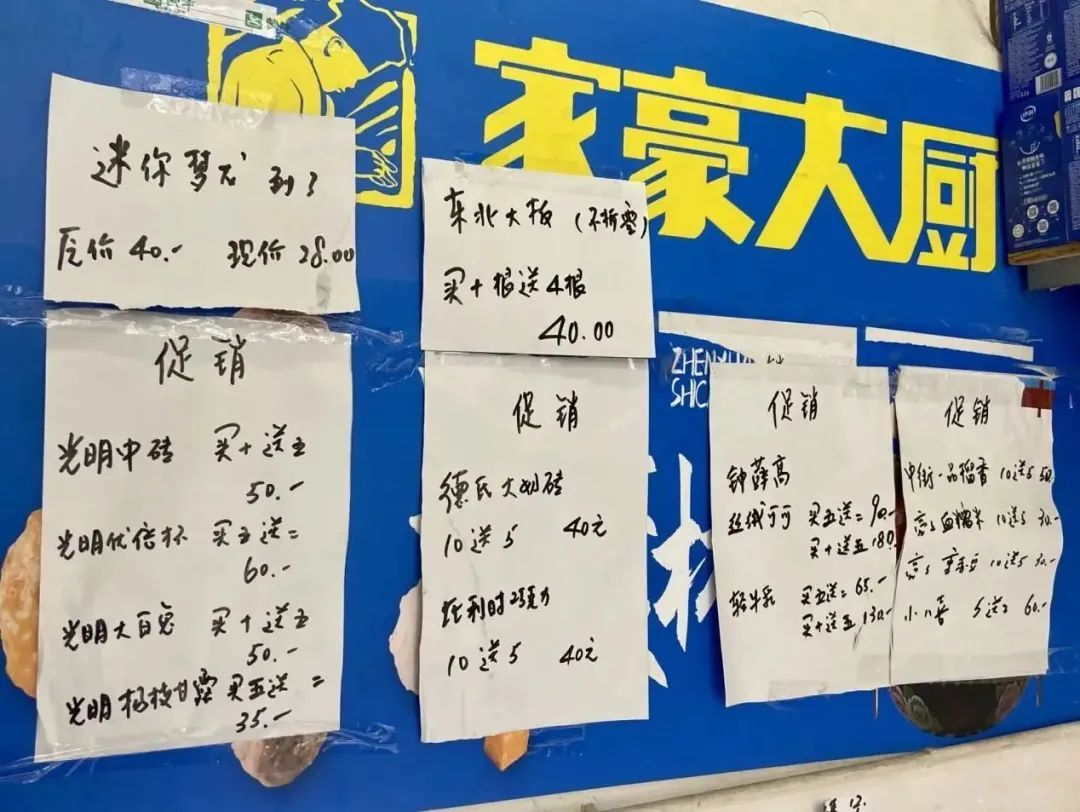 家豪大厨
迷你梦龙 到了
原价 40.- 现价 28.00
东北大板 (不拆零)
买十根送4根
40.00
ZHEN
SHIC
促销
光明中砖 买十送五
50.-
光明优倍杯 买五送二
60.-
光明大白兔 买十送五
50.-
光明杨枝甘露 买五送二
35.-
促销
德氏大
砖
10送5 40元
比利时巧克力
10送5 40元
促销
钟薛高
丝绒可可 买五送二 90.-
买十送五 180.
轻牛乳 买五送二 65.-
买十送五 130.-
促销
中街一品榴香 10送5 50.
血糯米 10送5 30.-
10送5 30.-
小 喜 5送2 60.-